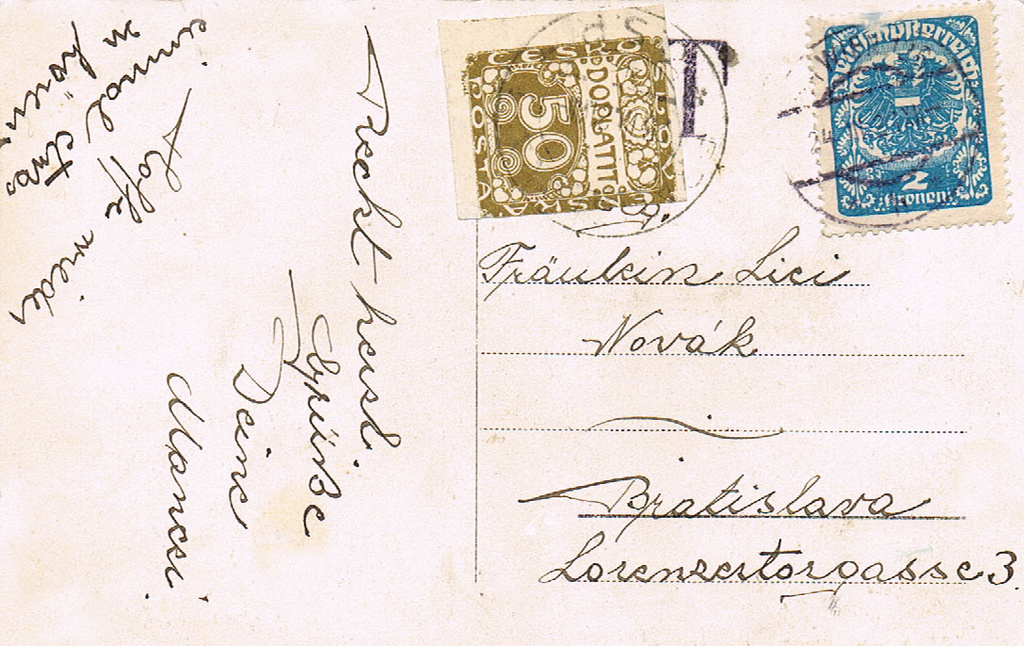 Recht herzl.
Grüße
Deine
Mancsi.
Hoffe wieder
einmal etwas
zu hören
ČESKO
SLOV
ENSKÁ
POŠTA
DOPLATIT
50
T
Deutschösterreich
2
Kronen
Fräulein Lici
Novák
Bratislava
Lorenzertorgasse 3